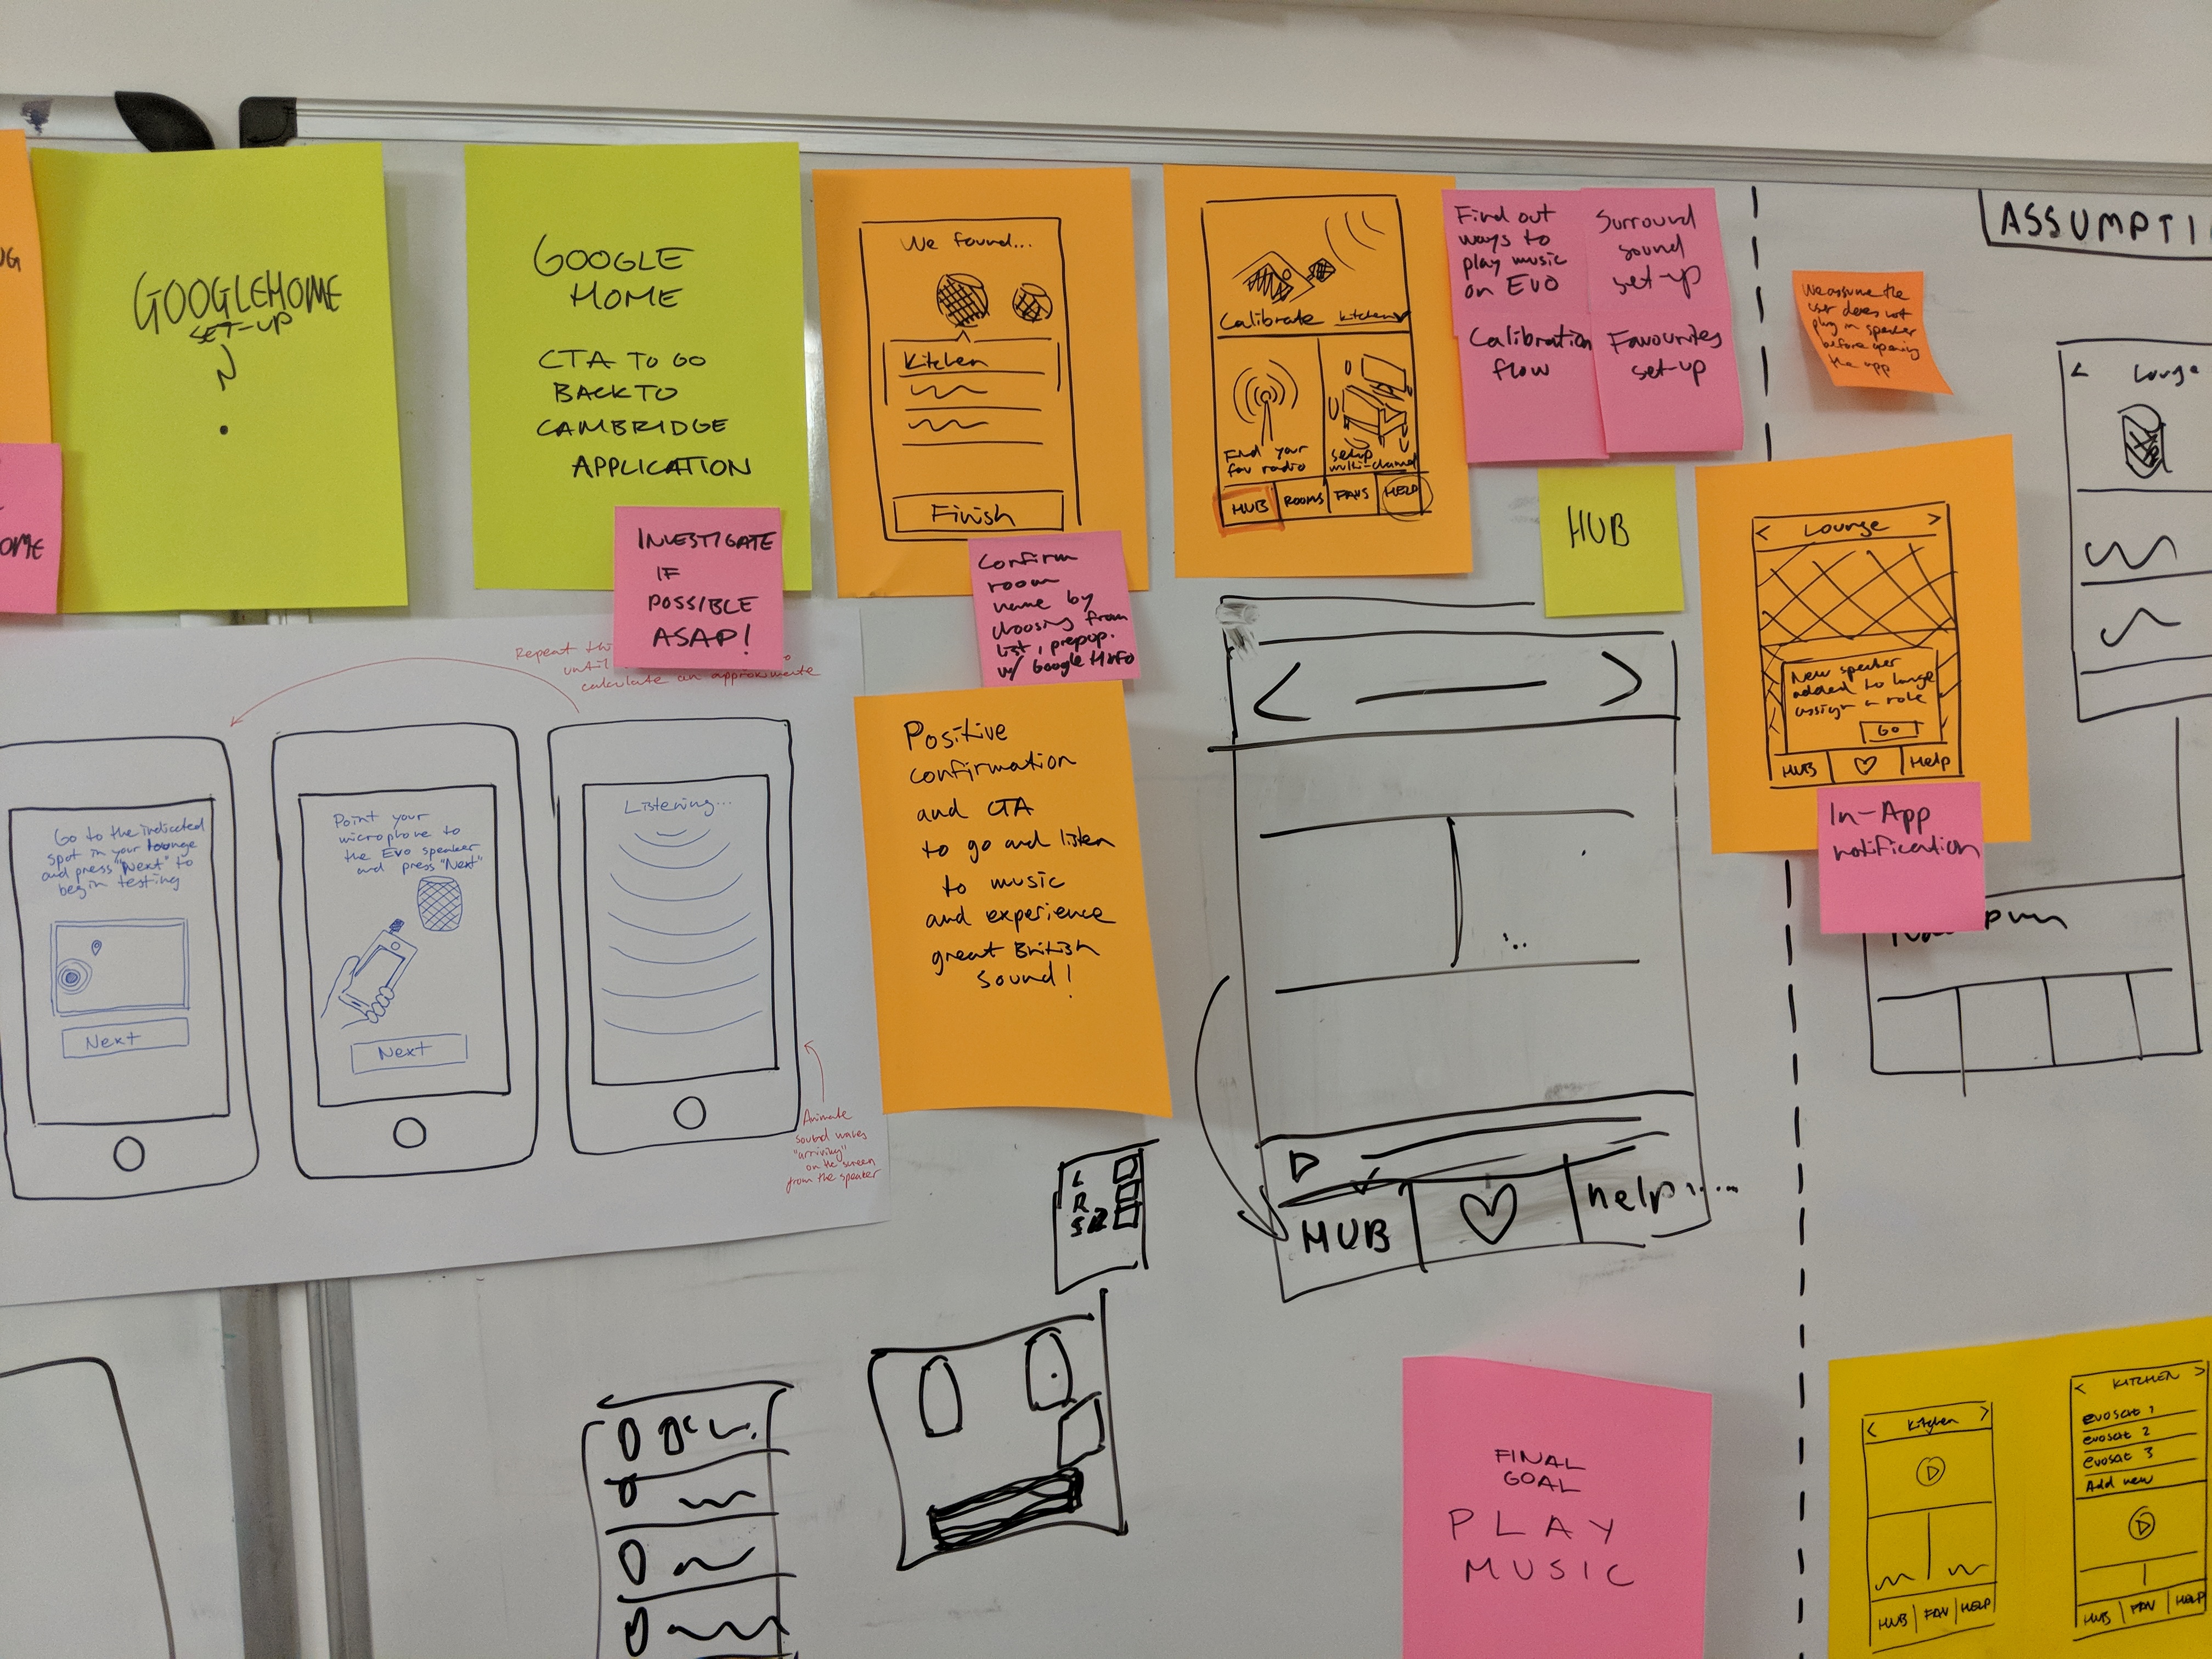 GOOGLEHOME
SET-UP
GOOGLE
HOME
CTA TO GO
BACK TO
CAMBRIDGE
APPLICATION
INVESTIGATE
IF
POSSIBLE
ASAP!
We found...
Kitchen
Finish
Confirm
room
name by
choosing from
list, prepop.
w/ Google H info
Calibrate kitchen
Find your
fav radio
setup
multi-channel
HUB
ROOMS
FAVS
HELP
Find out
ways to
play music
on EVO
Surround
sound
set-up
Calibration
flow
Favourites
set-up
HUB
ASSUMPTI
We assume the
user does not
plug in speaker
before opening
the app
< Lounge >
New speaker
added to lounge
assign a role
GO
HUB
Help
In-App
notification
< Lounge
OME
Repeat
until
calculate an approximate
Go to the indicated
spot in your lounge
and press "Next" to
begin testing
Next
Point your
microphone to
the Evo speaker
and press "Next"
Next
Listening...
Animate
sound waves
"arriving"
on the screen
from the speaker
Positive
confirmation
and CTA
to go and listen
to music
and experience
great British
sound!
L
R
HUB
help.....
FINAL
GOAL
PLAY
MUSIC
< Kitchen >
HUB
FAV
HELP
< KITCHEN >
evosat 1
evosat 2
evosat 3
Add new
HUB
FAV
HELP